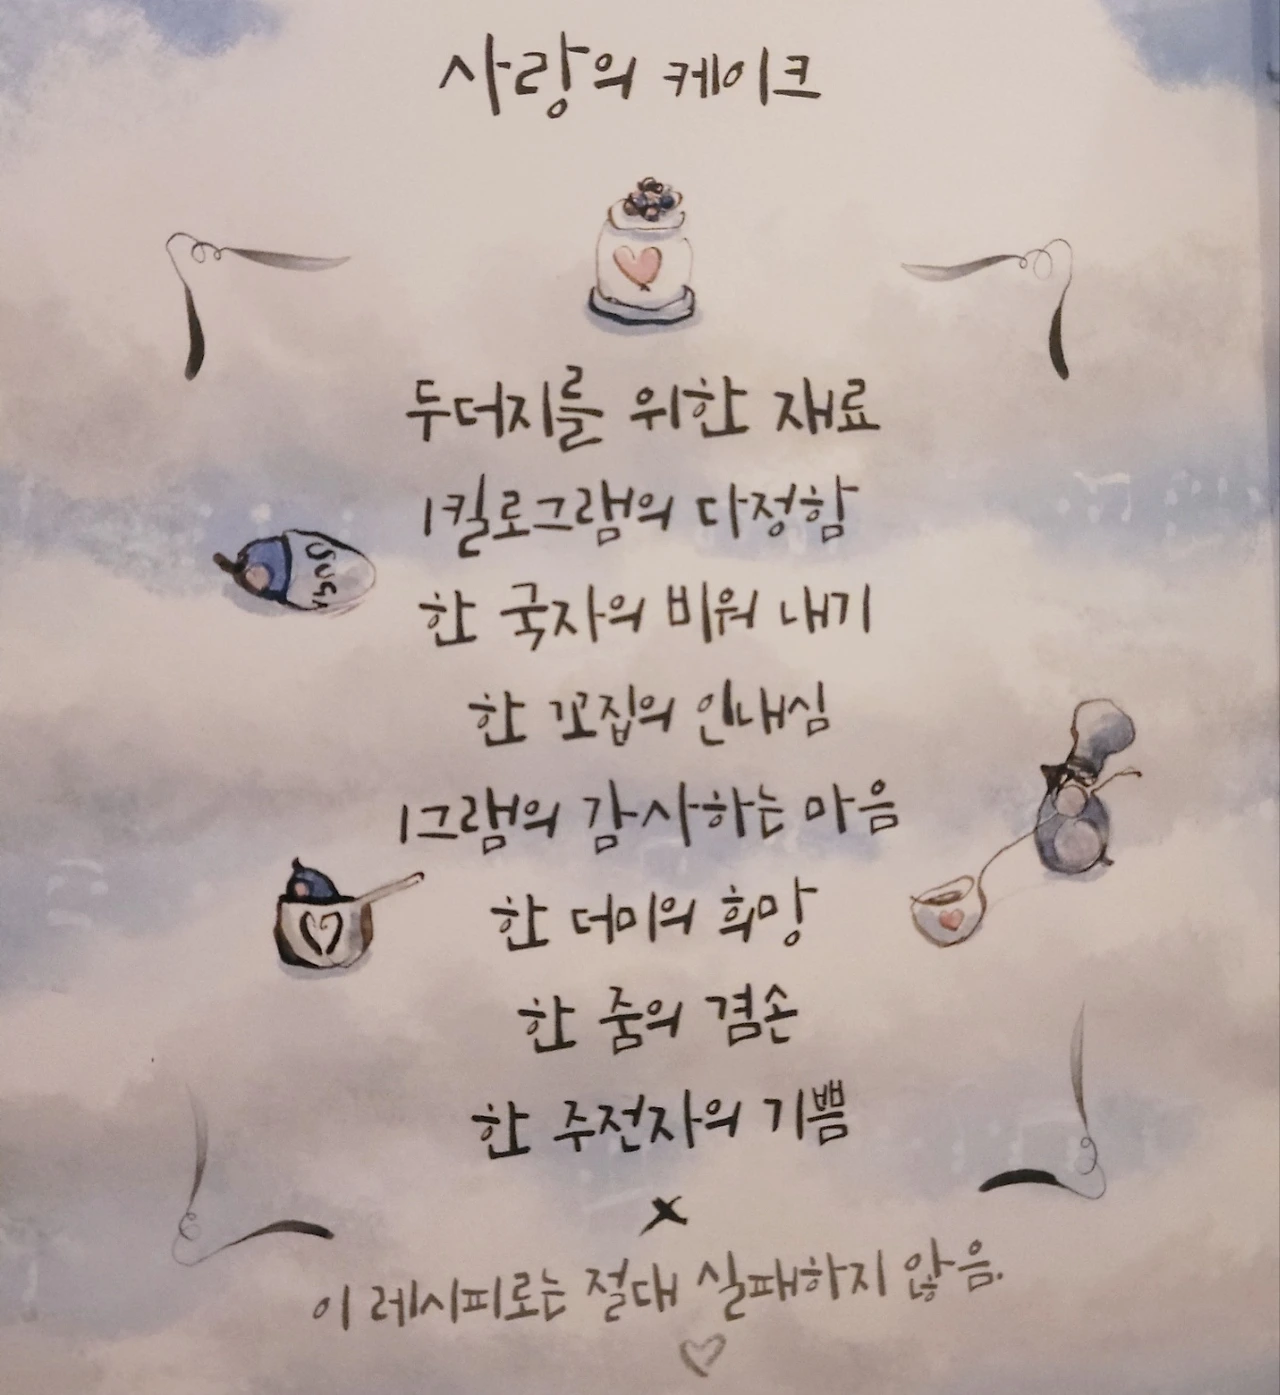 사랑의 케이크
두더지를 위한 재료
1킬로그램의 다정함
SUGA
한 국자의 비워 내기
한 꼬집의 인내심
1그램의 감사하는 마음
한 더미의 희망
한 줌의 겸손
한 주전자의 기쁨
x
이 레시피로는 절대 실패하지 않음.